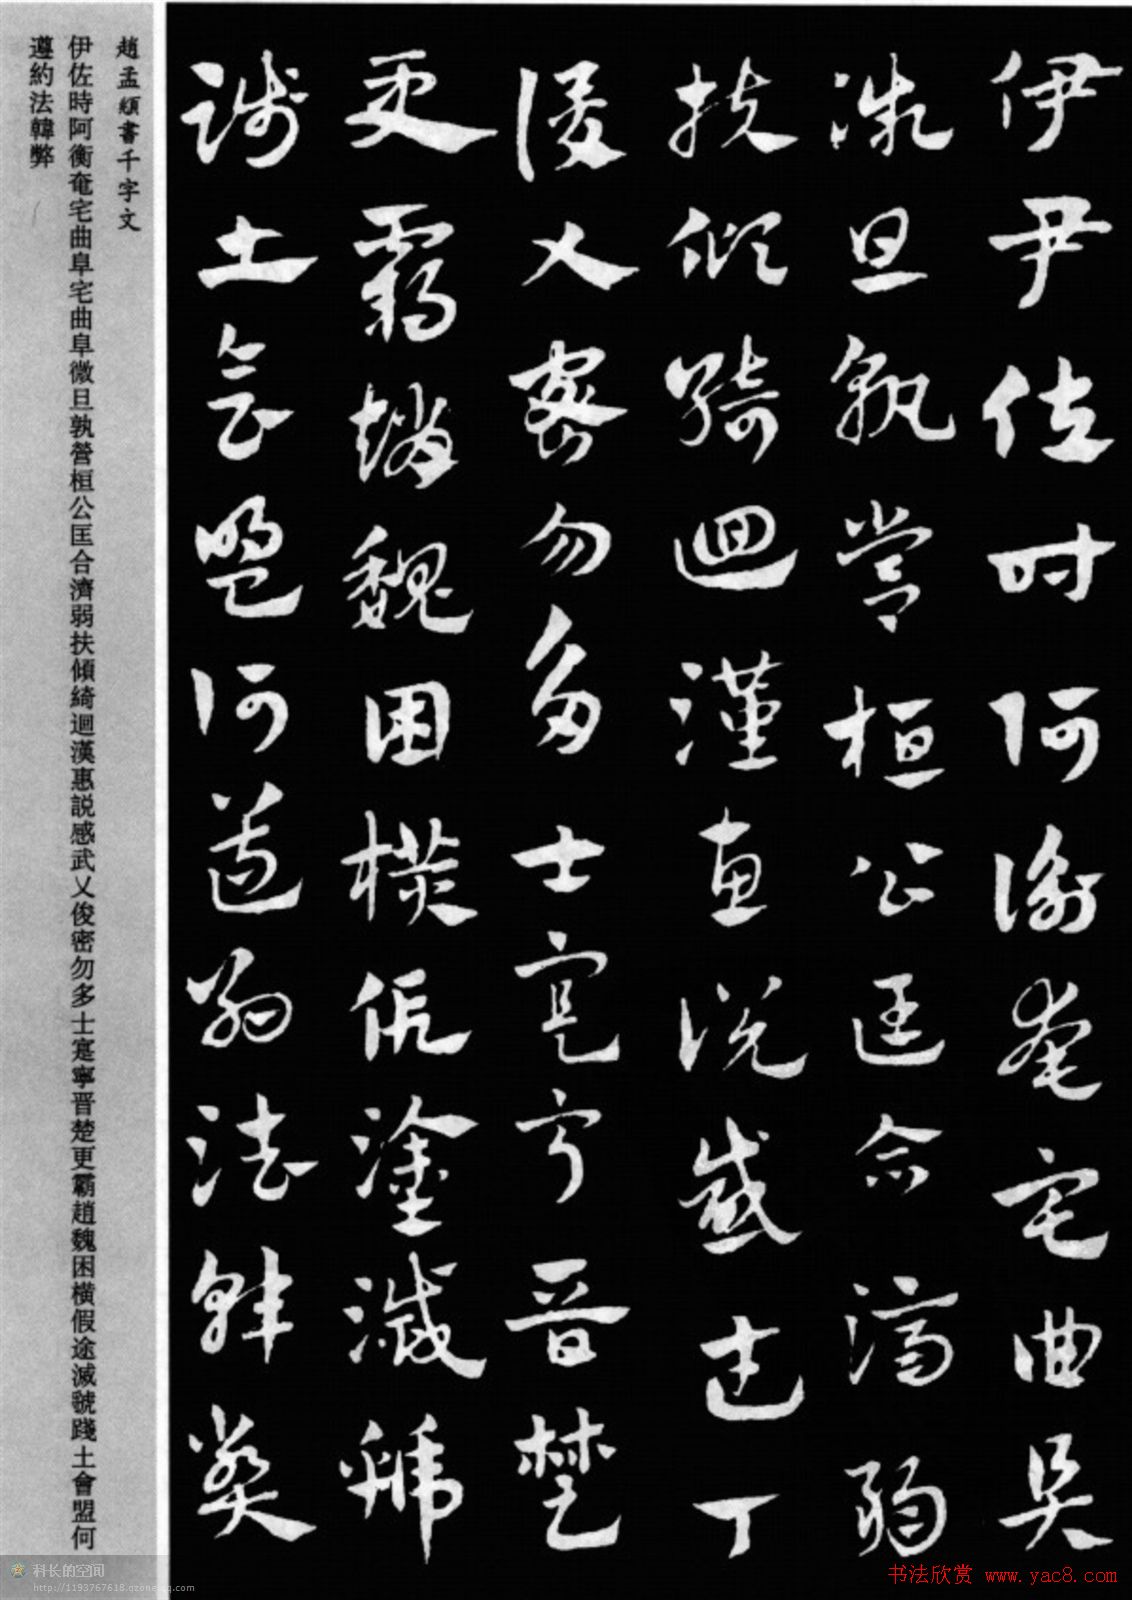 伊尹佐時阿衡奄宅曲阜
微旦孰營桓公匡合濟弱
扶傾綺迴漢惠説感武丁
俊乂密勿多士寔寧晋楚
更霸趙魏困横假途滅虢
踐土會盟何遵約法韓弊
趙孟頫書千字文
伊佐時阿衡奄宅曲阜宅曲阜微旦孰營桓公匡合濟弱扶傾綺迴漢惠説感武乂俊密勿多士寔寧晋楚更霸趙魏困横假途滅虢踐土會盟何
遵約法韓弊
科长的空间
http://1193767618.qzone.qq.com
书法欣赏 www.yac8.com